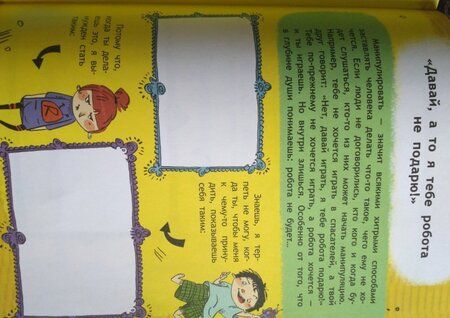 «Давай, а то я тебе робота
не подарю!»
Манипулировать — значит всякими хитрыми способами
заставлять человека делать что-то такое, чего ему не хо-
чется. Если люди не договорились, кто кого и когда бу-
дет слушаться, кто-то из них может начать манипуляцию.
Например, тебе не хочется играть в спасателей, а твой
друг говорит: «Нет, давай играть, я тебе робота подарю!»
Тебе по-прежнему не хочется играть, а робота хочется —
и ты играешь. Но внутри злишься. Особенно от того, что
в глубине души понимаешь: робота не будет...
Знаешь, я тер-
петь не могу, ког-
да ты, чтобы меня
к чему-то прину-
дить, показываешь
себя таким:
Потому что,
когда ты дела-
ешь это, я вы-
нужден стать
таким: